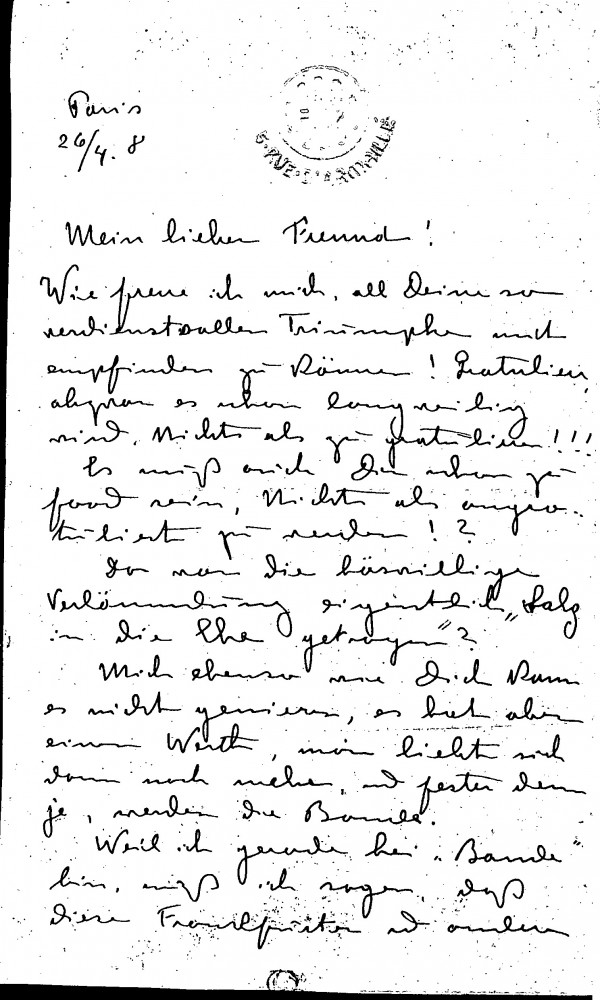 Paris
26/4. 8
5. RUE
Mein lieber Freund!
Wie freue ich mich, all Deine so
verdienstvollen Triumphe mit
empfinden zu können! Gratulieren,
abgar es schon langweilig
wird, Nichts als zu gratulieren!!!
Es muß auch Dir schon zu
food sein, Nichts als angra-
tuliert zu werden!?
Da war die böswillige
Verläumdung eigentlich „Salz
in die Ehe getragen"?
Mich ebenso wie Dich kann
es nicht genieren, es hat aber
einen Werth, man liebt sich
dann noch mehr, und fester denn
je, werden die Bande.
Weil ich gerade bei „Bande"
bin, muß ich sagen, daß
diese Frankfurter und andere